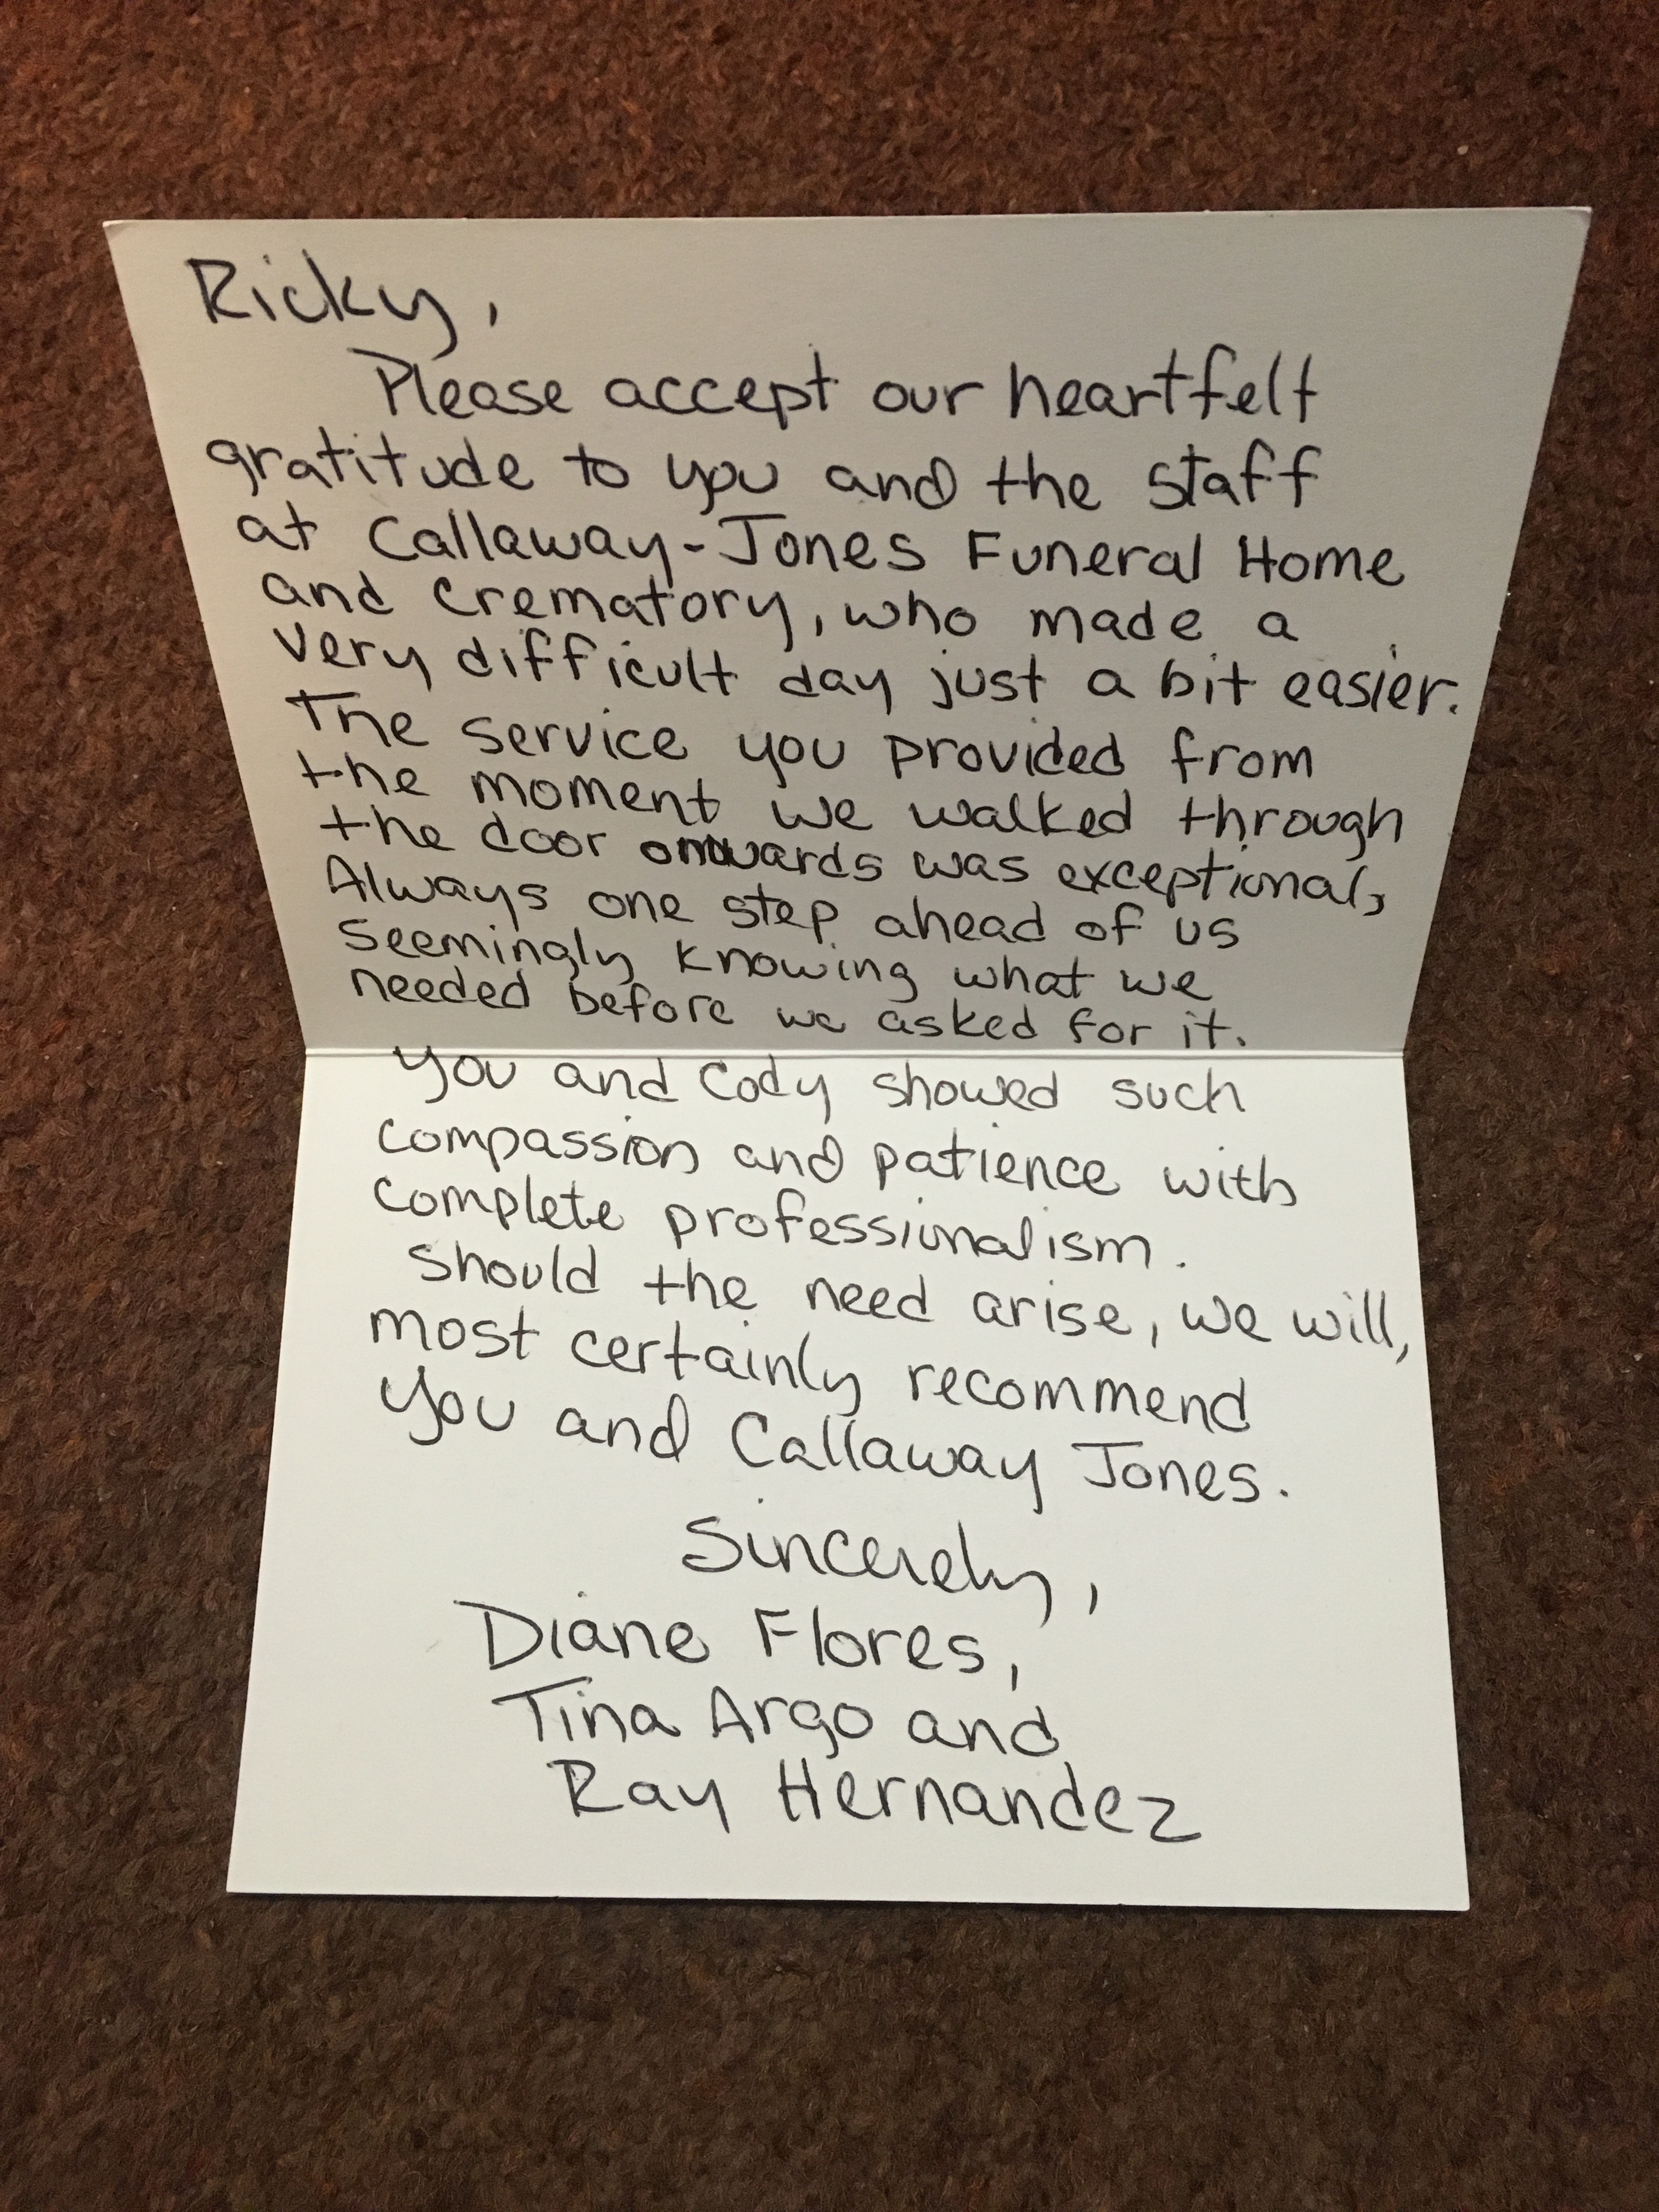 Ricky,
Please accept our heartfelt
gratitude to you and the staff
at Callaway-Jones Funeral Home
and Crematory, who made a
very difficult day just a bit easier.
The service you provided from
the moment we walked through
the door onwards was exceptional,
Always one step ahead of us
seemingly knowing what we
needed before we asked for it.
You and Cody showed such
compassion and patience with
complete professionalism.
Should the need arise, we will,
most certainly recommend
you and Callaway Jones.
Sincerely,
Diane Flores,
Tina Argo and
Ray Hernandez